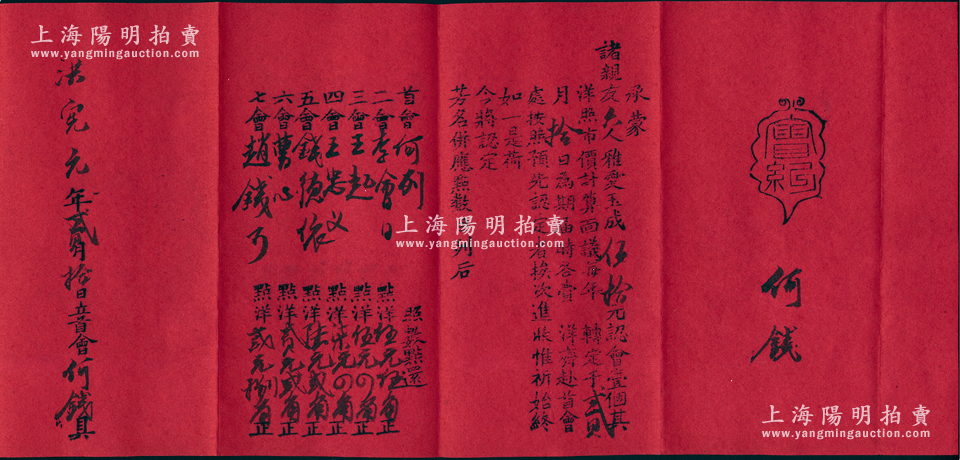 會紉
何錢
承蒙
諸親友久雅愛玉成伍拾元認會壹個其
洋照市價計算面議每年 轉定于弍月
月拾日為期屆時各賫 洋齊赴首會
處按照預先認定者挨次進收惟祈始終
如一是荷
今將認定
芳名併應無數 列后
首會何
二會李會
三會王
四會王忠义
五會錢德
六會曹心
七會趙錢
照數點還
點洋伍元伍角正
點洋伍元の角正
點洋柒元の角正
點洋陆元弍角正
點洋弍元弍角正
點洋弍元捌角正
洪宪元年弍月拾日首會何錢具
上海陽明拍賣
www.yangmingauction.com
上海陽明拍賣
www.yangmingauction.com
上海陽明拍賣
www.yangmingauction.com